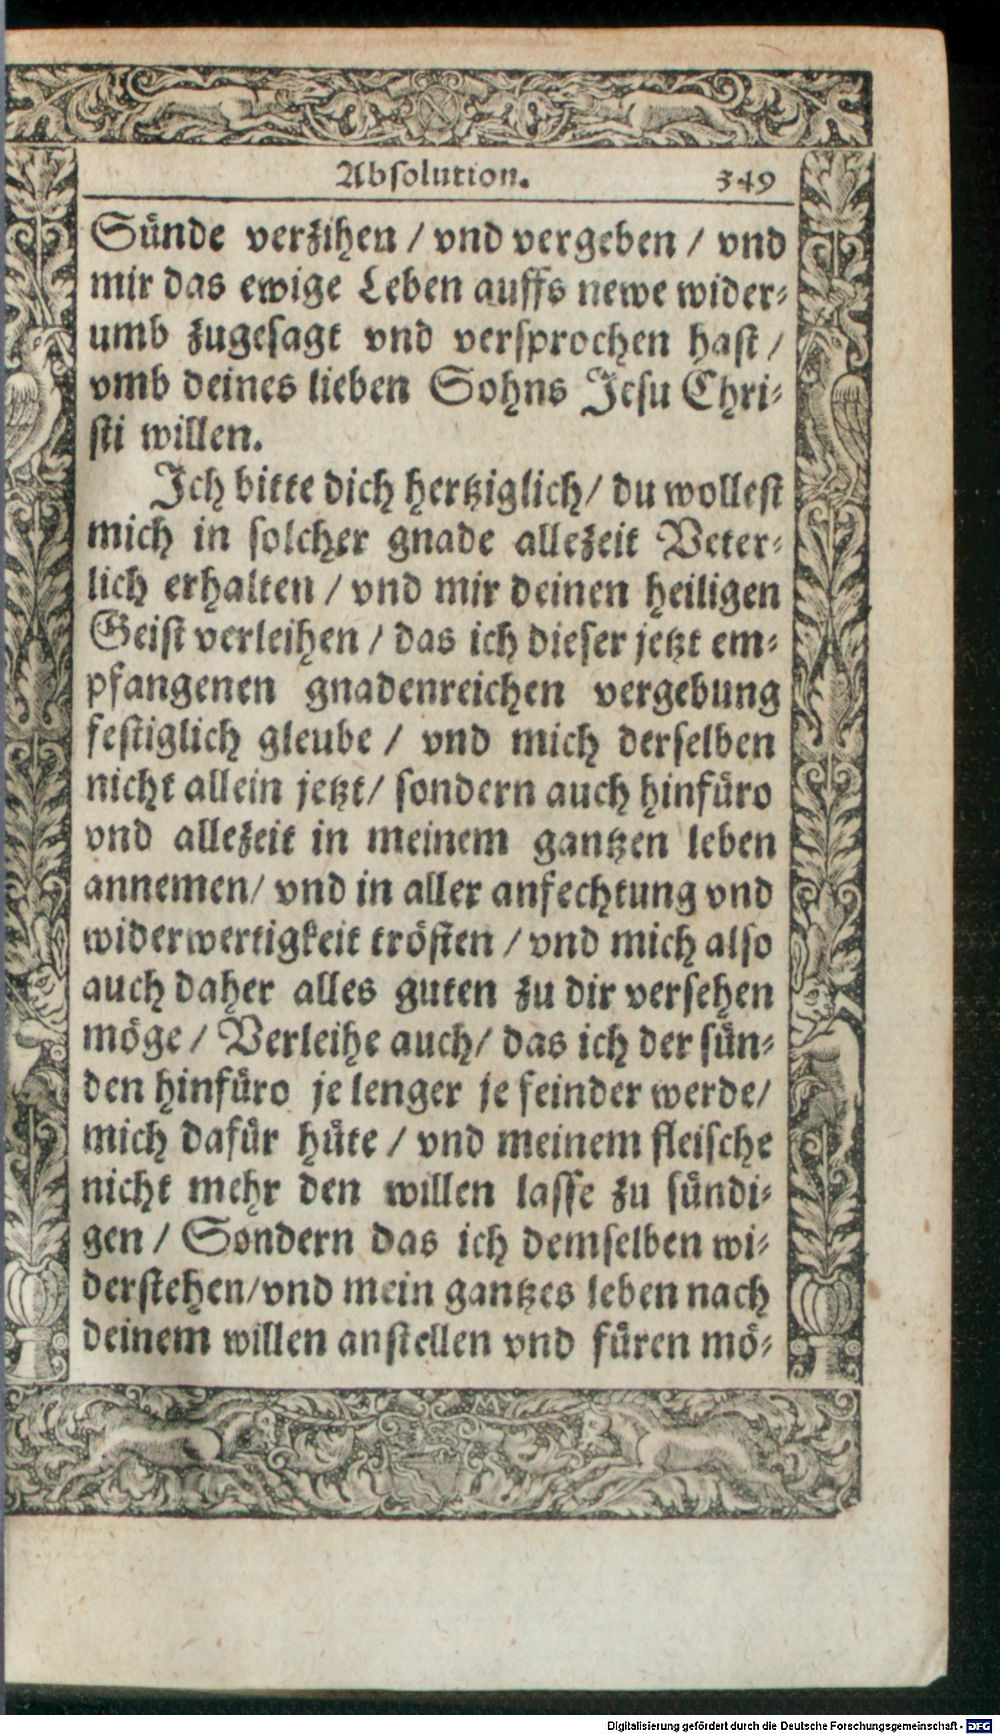 Absolution. 349
Sünde verzihen / vnd vergeben / vnd
mir das ewige Leben auffs newe wider-
umb zugesagt vnd versprochen hast /
vmb deines lieben Sohns Jesu Chri-
sti willen.
Ich bitte dich hertziglich / du wollest
mich in solcher gnade allezeit Veter-
lich erhalten / vnd mir deinen heiligen
Geist verleihen / das ich dieser jetzt em-
pfangenen gnadenreichen vergebung
festiglich gleube / vnd mich derselben
nicht allein jetzt / sondern auch hinfüro
vnd allezeit in meinem gantzen leben
annemen / vnd in aller anfechtung vnd
widerwertigkeit trösten / vnd mich also
auch daher alles guten zu dir versehen
möge / Verleihe auch / das ich der sün-
den hinfüro je lenger je feinder werde /
mich dafür hüte / vnd meinem fleische
nicht mehr den willen lasse zu sündi-
gen / Sondern das ich demselben wi-
derstehen / vnd mein gantzes leben nach
deinem willen anstellen vnd füren mö-
Digitalisierung gefördert durch die Deutsche Forschungsgemeinschaft - DFG